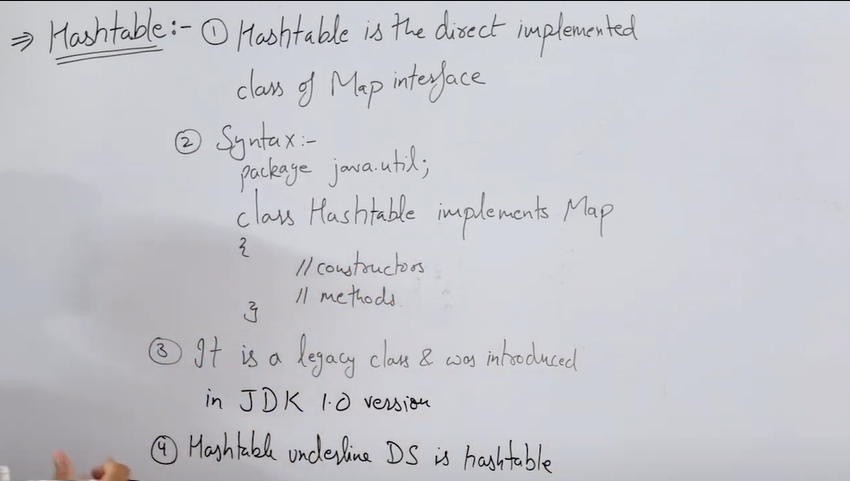 ⇒ Hashtable:- ① Hashtable is the direct implemented
class of Map interface
② Syntax:-
package java.util;
class Hashtable implements Map
{
//constructors
// methods
}
③ It is a legacy class & was introduced
in JDK 1.0 version
④ Hashtable underline DS is hashtable